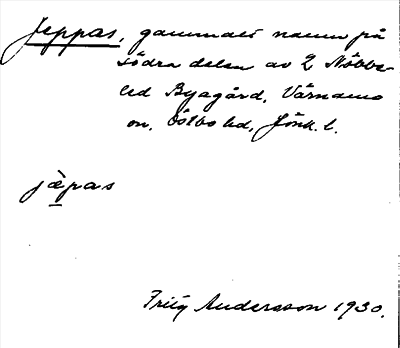 Jeppas, gammalt namn på
södra delen av 2 Nöbbe-
led Byagård, Värnamo
sn, Östbo hd, Jönk. l.
jæ̀pas
Fritz Andersson 1930.